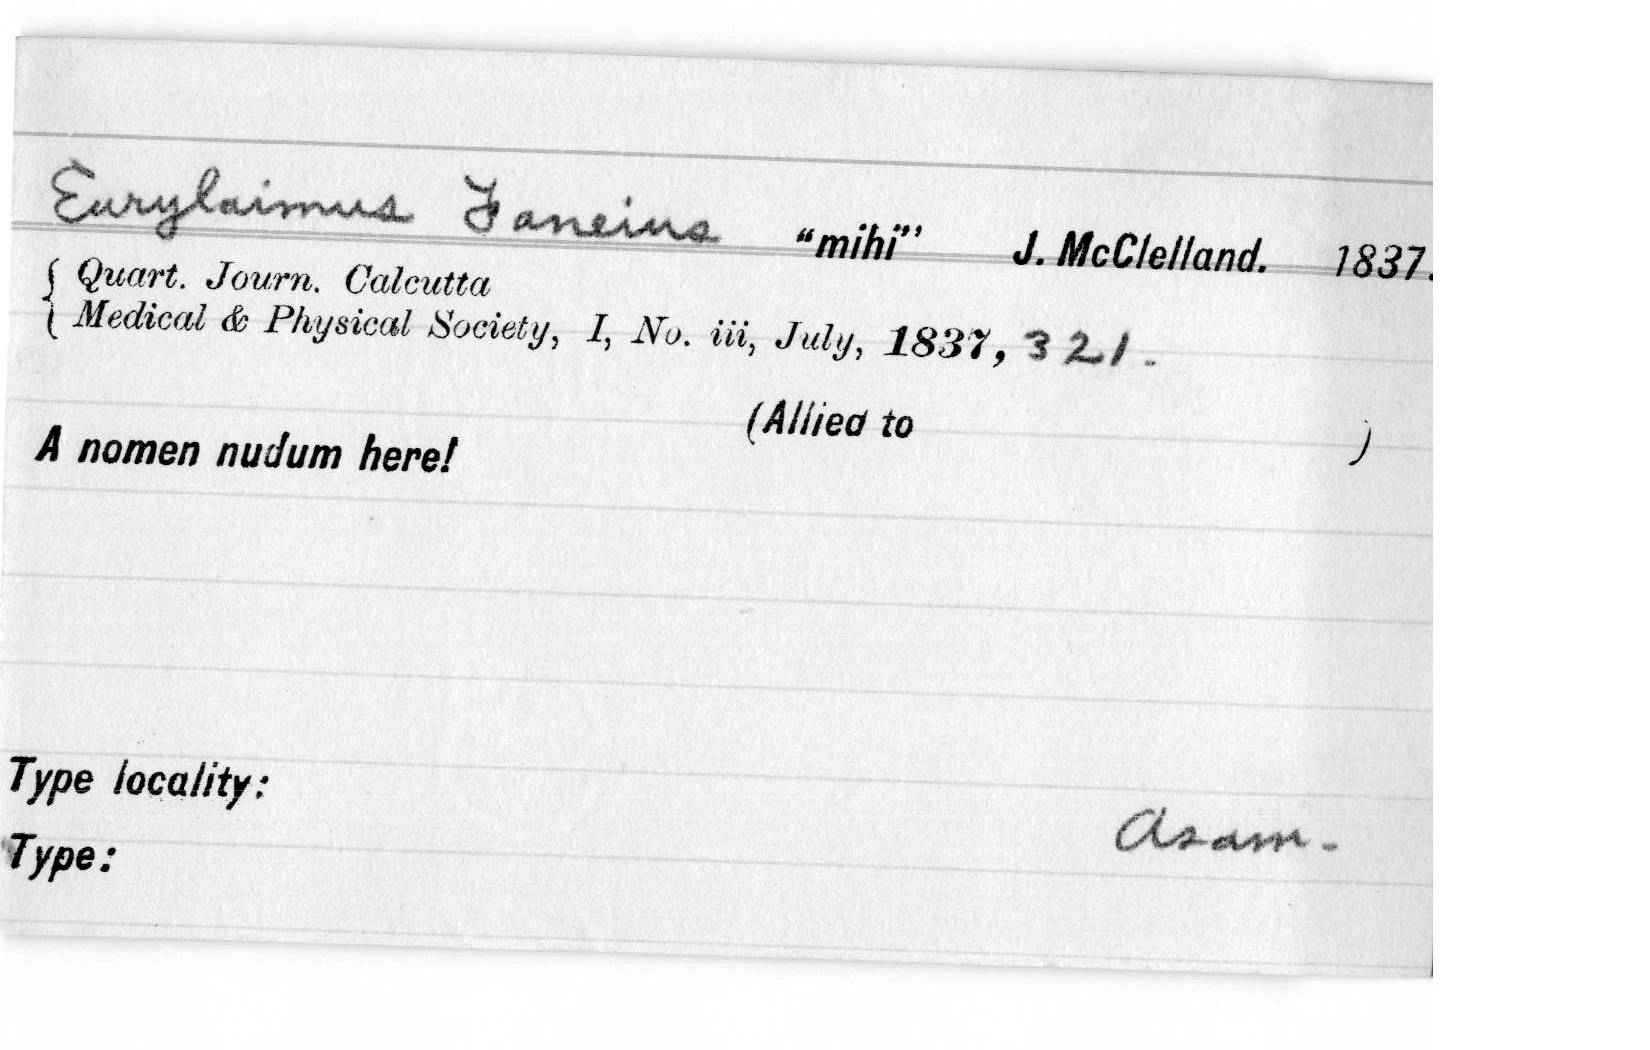 Eurylaimus Faneius "mihi" J. McClelland. 1837.
{ Quart. Journ. Calcutta
{ Medical & Physical Society, I, No. iii, July, 1837, 321.
(Allied to )
A nomen nudum here!
Type locality:
Asam.
Type: